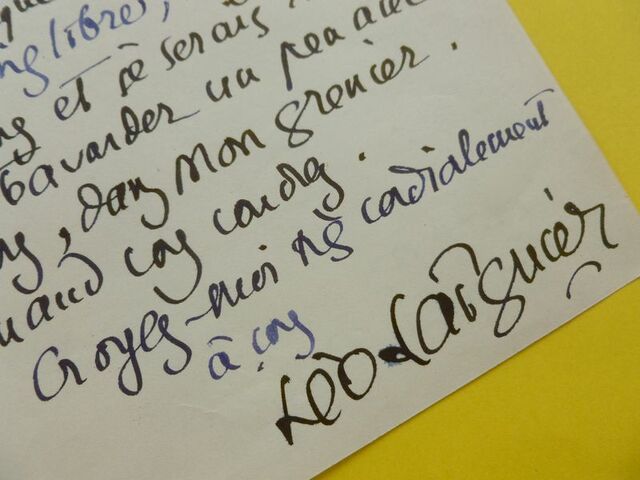 libre,
et je serais
bavarder un peu avec
vous, dans mon grenier.
quand vous voudrez.
Croyez-moi très cordialement
à vous
Léo Larguier